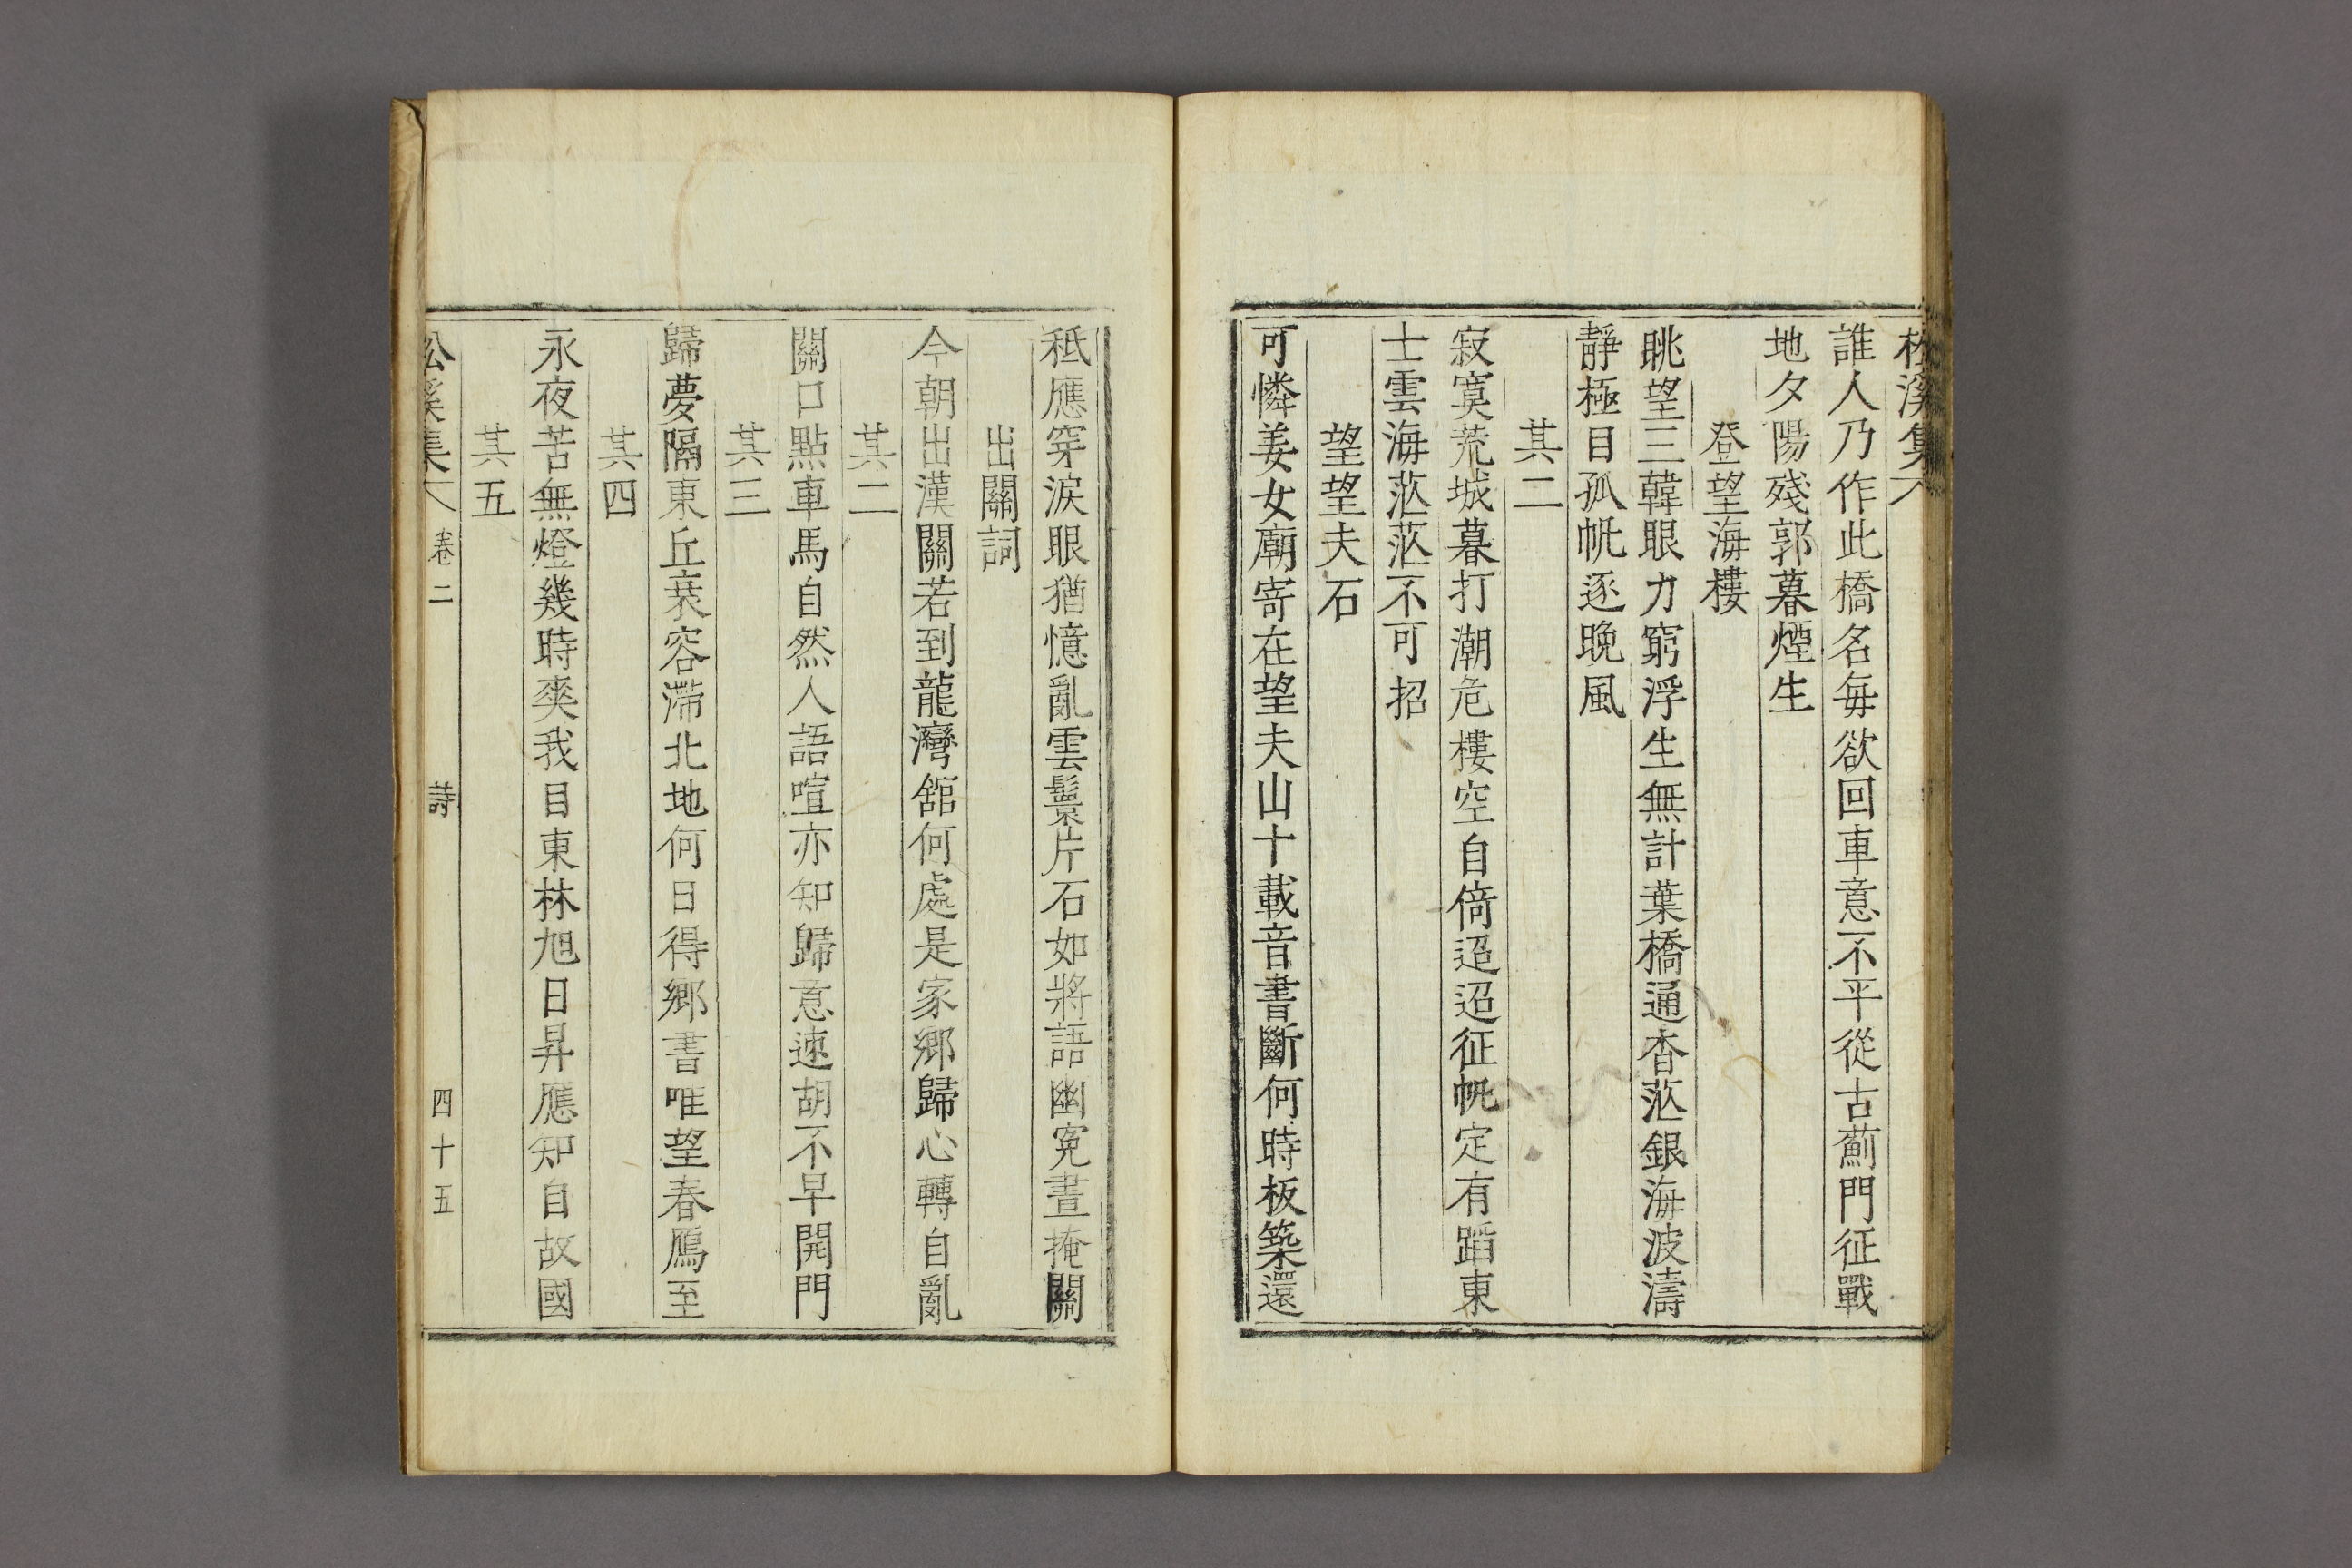 松溪集
誰人乃作此橋名每欲回車意不平從古薊門征戰
地夕陽殘郭暮煙生
登望海樓
眺望三韓眼力窮浮生無計葉橋通杳茫銀海波濤
靜極目孤帆逐晚風
其二
寂寞荒城暮打潮危樓空自倚迢迢征帆定有蹈東
士雲海茫茫不可招
望望夫石
可憐姜女廟寄在望夫山十載音書斷何時板築還
秪應穿淚眼猶憶亂雲鬟片石如將語幽寃晝掩關
出關詞
今朝出漢關若到龍灣舘何處是家鄉歸心轉自亂
其二
關口點車馬自然人語喧亦知歸意速胡不早開門
其三
歸夢隔東丘衰容滯北地何日得鄉書唯望春鴈至
其四
永夜苦無燈幾時爽我目東林旭日昇應知自故國
其五
松溪集 卷二 詩 四十五